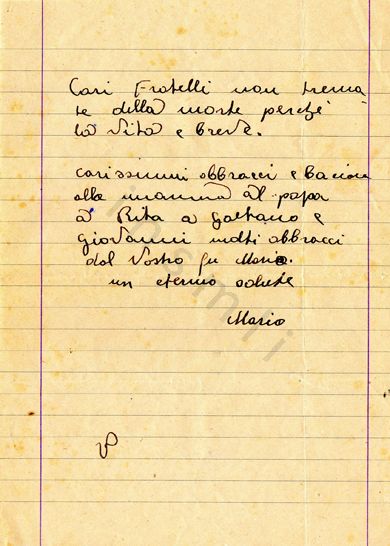 Cari Fratelli non trema
te della morte perché
la vita e breve.
carissimi abbracci e bacioni
alla mamma al papa
a Rita a Gaetano e
Giovanni molti abbracci
dal Vostro fu Mario.
un eterno salute
Mario